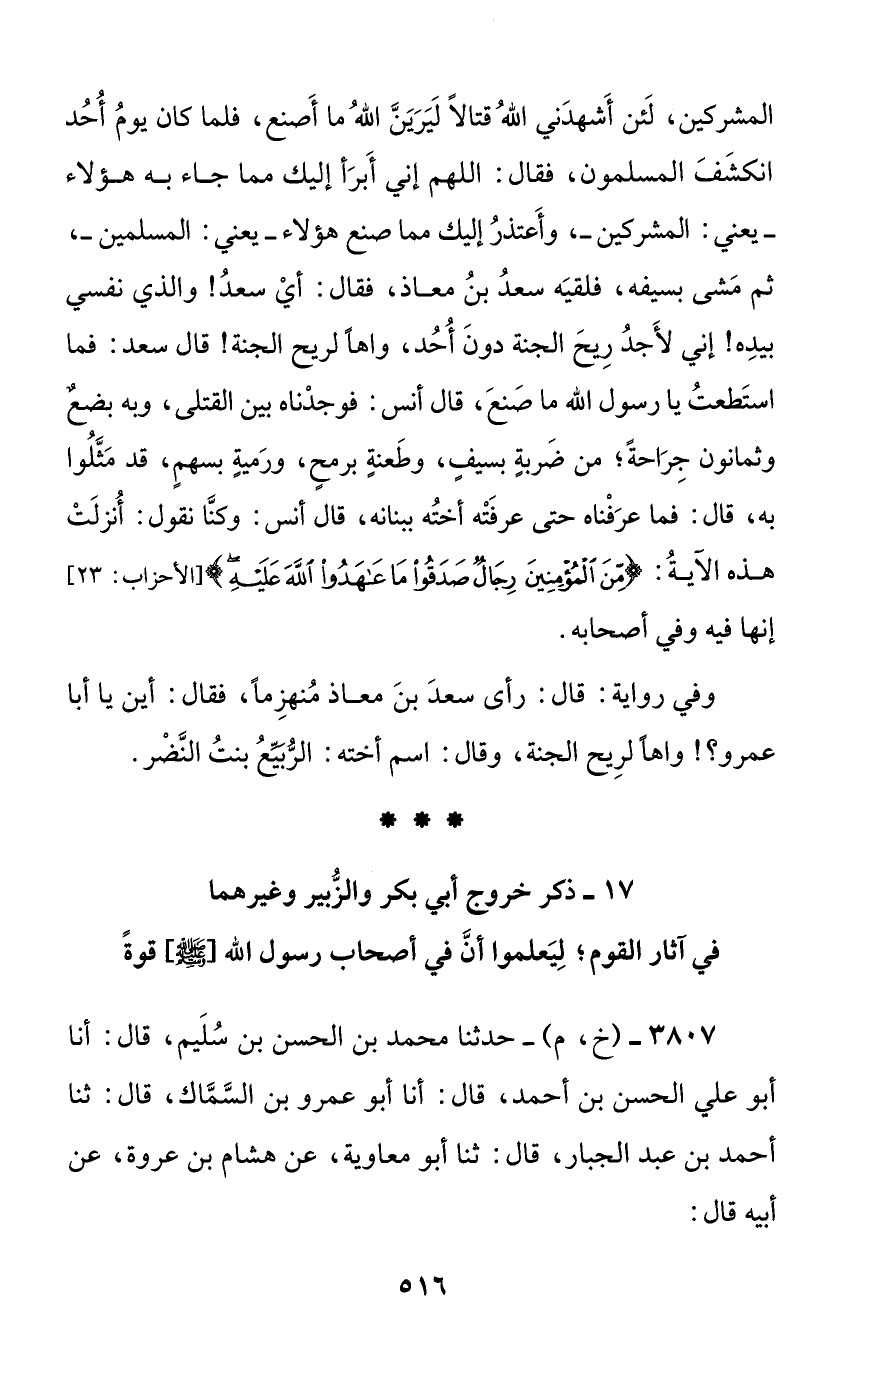 المشركين، لَئن أَشهدَني اللهُ قتالاً لَيَرَيَنَّ اللهُ ما أَصنع، فلما كان يومُ أُحُد
انكشَفَ المسلمون، فقال: اللهم إني أَبرَأ إليك مما جاء به هؤلاء
ـ يعني: المشركين ـ، وأَعتذرُ إليك مما صنع هؤلاء ـ يعني: المسلمين ـ،
ثم مَشى بسيفه، فلقيَه سعدُ بنُ معاذ، فقال: أيْ سعدُ! والذي نفسي
بيدِه! إني لأَجدُ رِيحَ الجنة دونَ أُحُد، واهاً لريح الجنة! قال سعد: فما
استَطعتُ يا رسول الله ما صَنعَ، قال أنس: فوجدْناه بين القتلى، وبه بضعٌ
وثمانون جِرَاحةً؛ من ضَربةٍ بسيفٍ، وطَعنةٍ برمحٍ، ورَميةٍ بسهمٍ، قد مَثَّلُوا
به، قال: فما عرَفْناه حتى عرفَتْه أختُه ببنانه، قال أنس: وكنَّا نقول: أُنزلَتْ
هذه الآيةُ: ﴿مِّنَ ٱلْمُؤْمِنِينَ رِجَالٌ صَدَقُواْ مَا عَـٰهَدُواْ ٱللَّهَ عَلَيْهِۖ﴾[الأحزاب: ٢٣]
إنها فيه وفي أصحابه.
وفي رواية: قال: رأى سعدَ بنَ معاذ مُنهزِماً، فقال: أين يا أبا
عمرو؟! واهاً لرِيح الجنة، وقال: اسم أخته: الرُّبَيِّعُ بنتُ النَّضْر.
* * *
١٧ ـ ذكر خروج أبي بكر والزُّبير وغيرهما
في آثار القوم؛ لِيَعلموا أنَّ في أصحاب رسول الله [ﷺ] قوةً
٣٨٠٧ ـ (خ، م) ـ حدثنا محمد بن الحسن بن سُلَيم، قال: أنا
أبو علي الحسن بن أحمد، قال: أنا أبو عمرو بن السَّمَّاك، قال: ثنا
أحمد بن عبد الجبار، قال: ثنا أبو معاوية، عن هشام بن عروة، عن
أبيه قال:
٥١٦